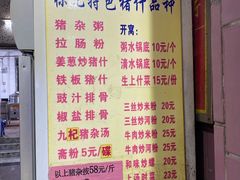 特色猪什品种
猪杂粥
拉肠粉
姜葱炒猪什
铁板猪什
豉汁排骨
椒盐排骨
九杞猪杂汤
斋粉5元/碟
以上猪杂按58元/斤
开窝:
粥水锅底10元/个
清水锅底10元/个
生上什菜15元/份
三丝炒米粉20元
三丝炒河粉20元
牛肉炒米粉25元
牛肉炒河粉25元
和味炒螺20元
上汤时菜